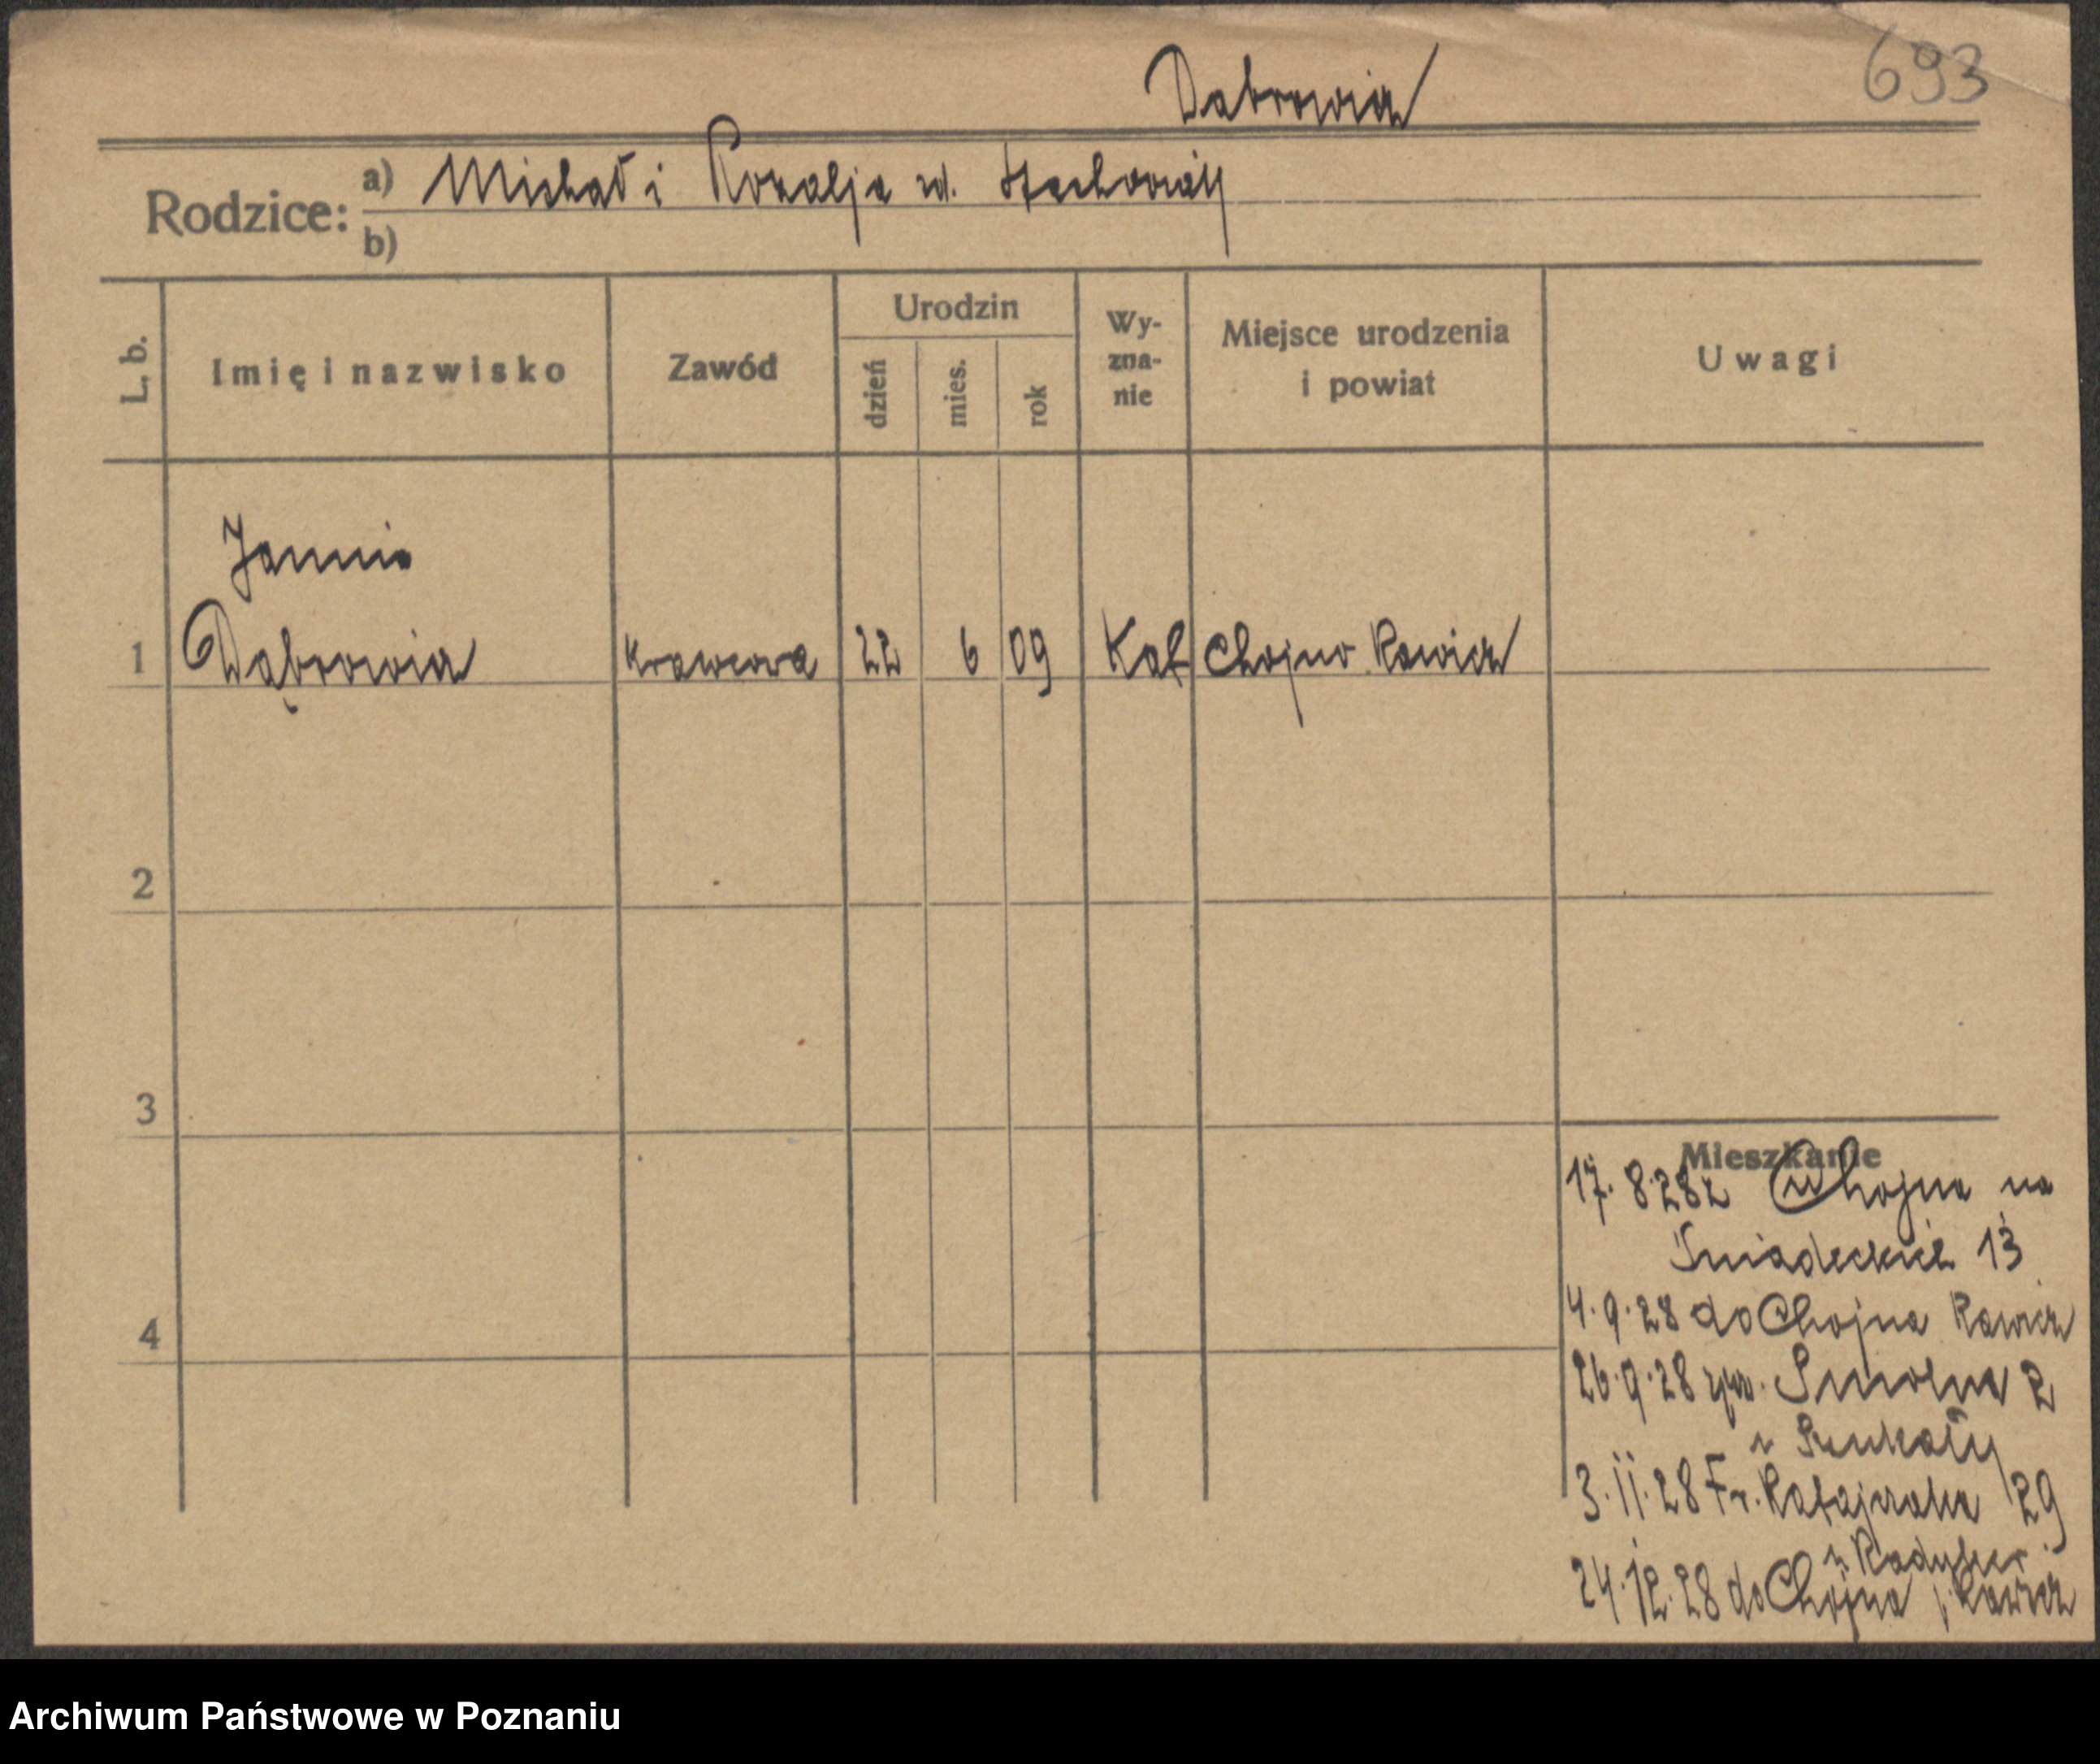 693
Dabrowicz
Rodzice: a) Michał i Rozalja zd. Stachowiak
b)
L. b. Imię i nazwisko Zawód Urodzin dzień mies. rok Wy-zna-nie Miejsce urodzenia i powiat Uwagi
Janina
1 Dąbrowicz krawcowa 22 6 09 Kat Chojno Rawicz
2
3
Mieszkanie
17.8.28 z Chojna na
Śniadeckich 13
4
4.9.28 do Chojna Rawicz
26.9.28 Smolna 2
3.11.28 Fr. Ratajczaka 29
24.12.28 do Chojna Rawicz
Archiwum Państwowe w Poznaniu